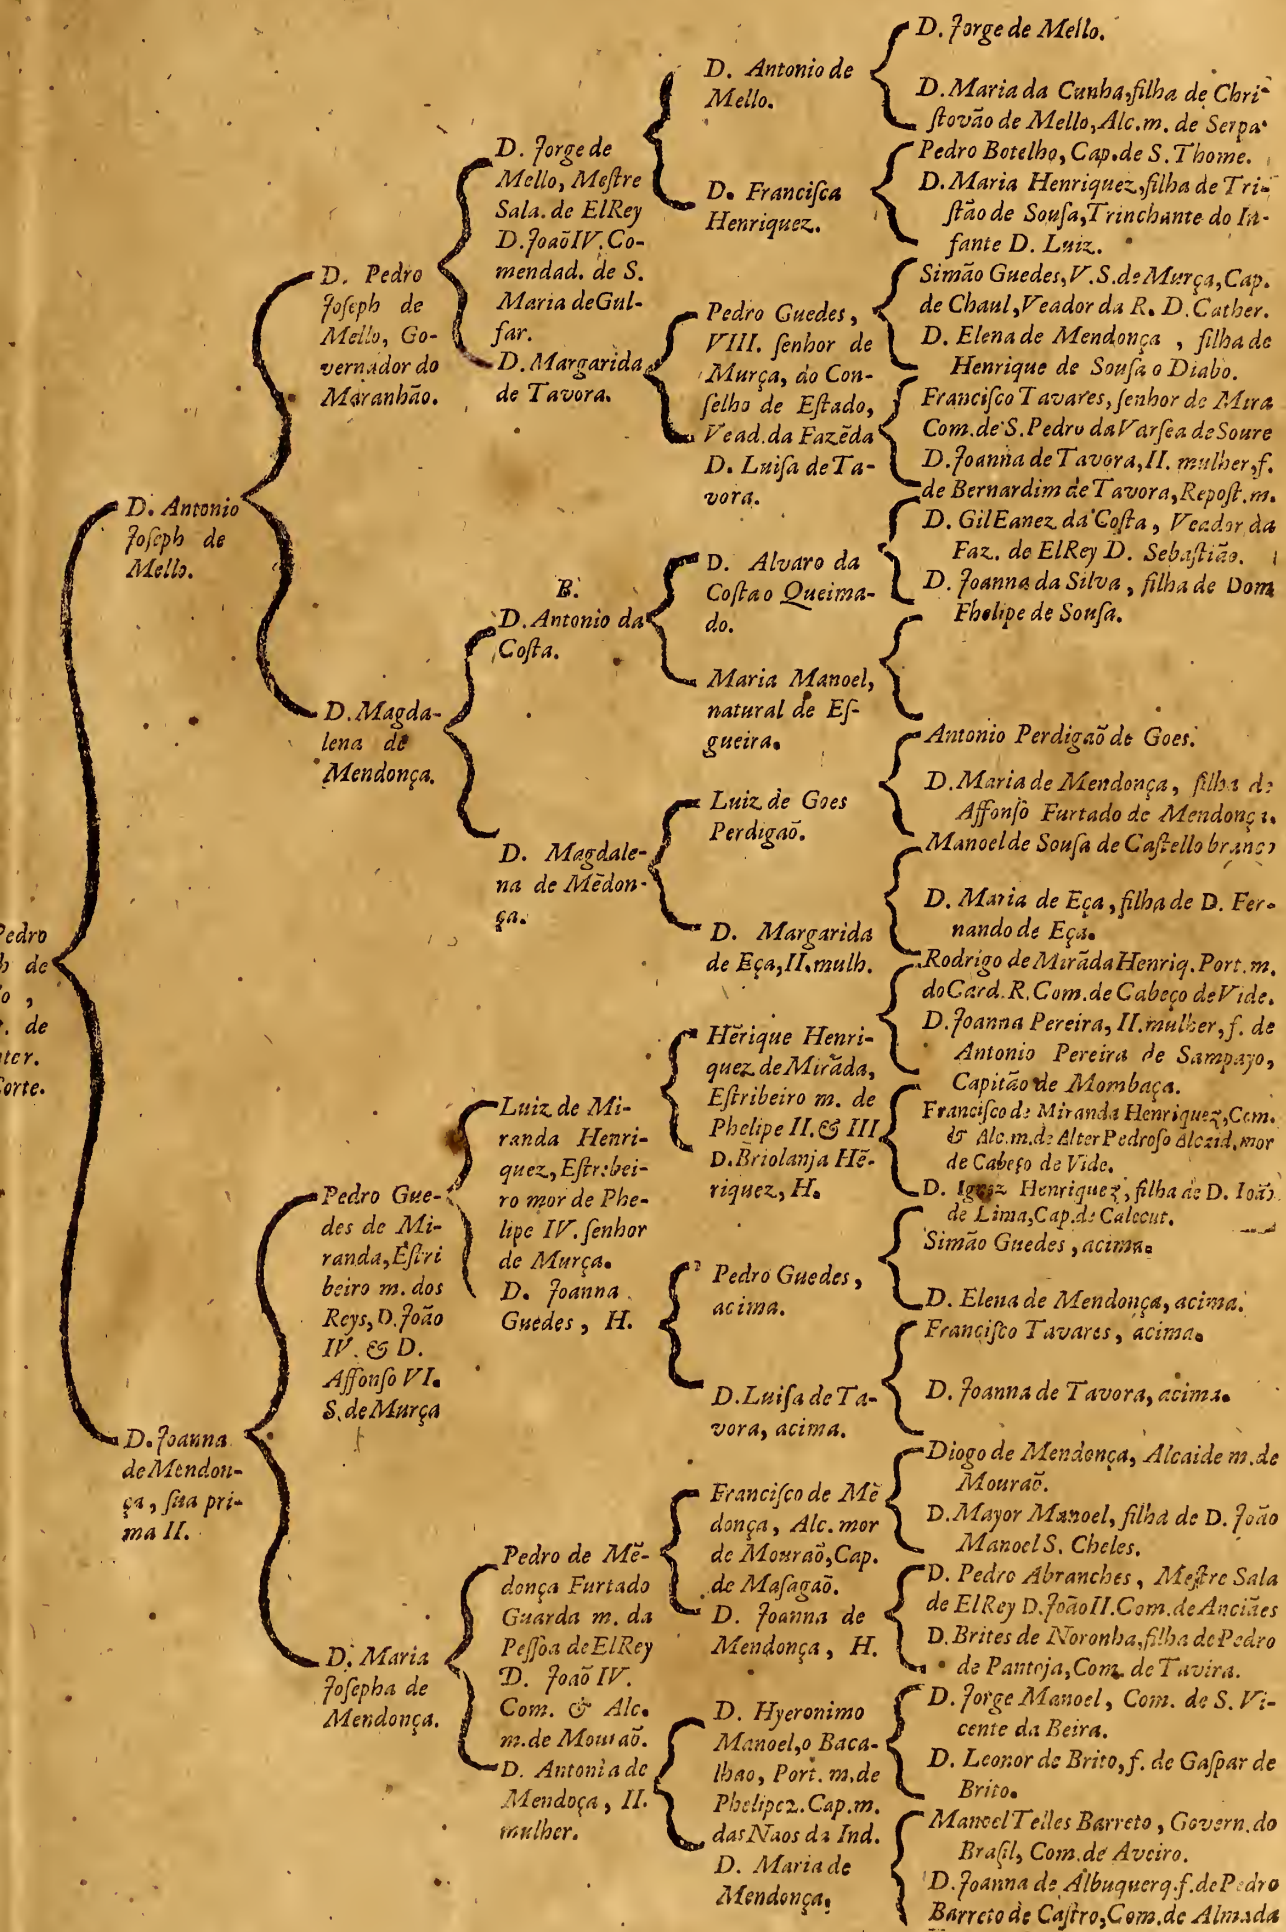 Pedro
de
de
Corte.
D. Antonio
Joſeph de
Mello.
D. Joanna
de Mendon-
ça, ſua pri-
ma II.
D. Pedro
Joſeph de
Mello, Go-
vernador do
Maranhão.
D. Magda-
lena de
Mendonça.
Pedro Gue-
des de Mi-
randa, Eſtri
beiro m. dos
Reys, D. João
IV. & D.
Affonſo VI.
S. de Murça
D. Maria
Joſepha de
Mendonça.
D. Jorge de
Mello, Meſtre
Sala. de ElRey
D. Joaõ IV. Co-
mendad. de S.
Maria de Gul-
far.
D. Margarida
de Tavora.
B.
D. Antonio da
Coſta.
D. Magdale-
na de Mẽdon-
ça.
Luiz de Mi-
randa Henri-
quez, Eſtribei-
ro mor de Phe-
lipe IV. ſenhor
de Murça.
D. Joanna
Guedes, H.
Pedro de Mẽ-
donça Furtado
Guarda m. da
Peſſoa de ElRey
D. Joaõ IV.
Com. & Alc.
m. de Mouraõ.
D. Antonia de
Mendoça, II.
mulher.
D. Antonio de
Mello.
D. Franciſca
Henriquez.
Pedro Guedes,
VIII. ſenhor de
Murça, do Con-
ſelho de Eſtado,
Vead. da Fazẽda
D. Luiſa de Ta-
vora.
D. Alvaro da
Coſta o Queima-
do.
Maria Manoel,
natural de Eſ-
gueira.
Luiz de Goes
Perdigaõ.
D. Margarida
de Eça, II. mulh.
Hẽrique Henri-
quez de Mirãda,
Eſtribeiro m. de
Phelipe II. & III
D. Briolanja Hẽ-
riquez, H.
Pedro Guedes,
acima.
D. Luiſa de Ta-
vora, acima.
Franciſco de Mẽ
donça, Alc. mor
de Mouraõ, Cap.
de Maſagaõ.
D. Joanna de
Mendonça, H.
D. Hyeronimo
Manoel, o Baca-
lhao, Port. m. de
Phelipe 2. Cap. m.
das Naos da Ind.
D. Maria de
Mendonça.
D. Jorge de Mello.
D. Maria da Cunha, filha de Chri-
ſtovão de Mello, Alc. m. de Serpa.
Pedro Botelho, Cap. de S. Thome.
D. Maria Henriquez, filha de Tri-
ſtão de Souſa, Trinchante do In-
fante D. Luiz.
Simão Guedes, V. S. de Murça, Cap.
de Chaul, Veador da R. D. Cather.
D. Elena de Mendonça, filha de
Henrique de Souſa o Diabo.
Franciſco Tavares, ſenhor de Mira
Com. de S. Pedro da Varſea de Soure
D. Joanna de Tavora, II. mulher, f.
de Bernardim de Tavora, Repoſt. m.
D. Gil Eanez da Coſta, Veador da
Faz. de ElRey D. Sebaſtião.
D. Joanna da Silva, filha de Dom
Phelipe de Souſa.
Antonio Perdigaõ de Goes.
D. Maria de Mendonça, filha de
Affonſo Furtado de Mendonça.
Manoel de Souſa de Caſtello branco
D. Maria de Eça, filha de D. Fer-
nando de Eça.
Rodrigo de Mirãda Henriq. Port. m.
do Card. R. Com. de Cabeço de Vide.
D. Joanna Pereira, II. mulher, f. de
Antonio Pereira de Sampayo,
Capitão de Mombaça.
Franciſco de Miranda Henriquez, Com.
& Alc. m. de Alter Pedroſo Alcaid. mor
de Cabeço de Vide.
D. Ignez Henriquez, filha de D. Ioão
de Lima, Cap. de Calecut.
Simão Guedes, acima.
D. Elena de Mendonça, acima.
Franciſco Tavares, acima.
D. Joanna de Tavora, acima.
Diogo de Mendonça, Alcaide m. de
Mouraõ.
D. Mayor Manoel, filha de D. João
Manoel S. Cheles.
D. Pedro Abranches, Meſtre Sala
de ElRey D. João II. Com. de Anciães
D. Brites de Noronha, filha de Pedro
de Pantoja, Com. de Tavira.
D. Jorge Manoel, Com. de S. Vi-
cente da Beira.
D. Leonor de Brito, f. de Gaſpar de
Brito.
Manoel Telles Barreto, Govern. do
Braſil, Com. de Aveiro.
D. Joanna de Albuquerq. f. de Pedro
Barreto de Caſtro, Com. de Almada